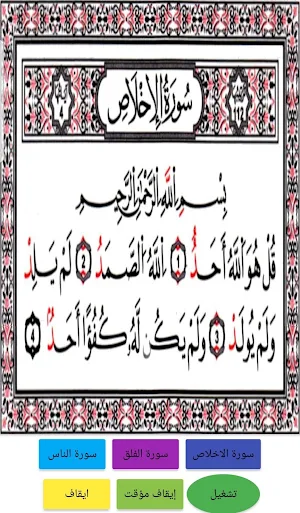 سُورَةُ الإِخْلَاصِ
بِسْمِ اللَّهِ الرَّحْمَٰنِ الرَّحِيمِ
قُلْ هُوَ اللَّهُ أَحَدٌ 1 اللَّهُ الصَّمَدُ 2 لَمْ يَلِدْ
وَلَمْ يُولَدْ 3 وَلَمْ يَكُن لَّهُ كُفُوًا أَحَدٌ 4
سورة الاخلاص سورة الفلق سورة الناس
تشغيل إيقاف مؤقت ايقاف